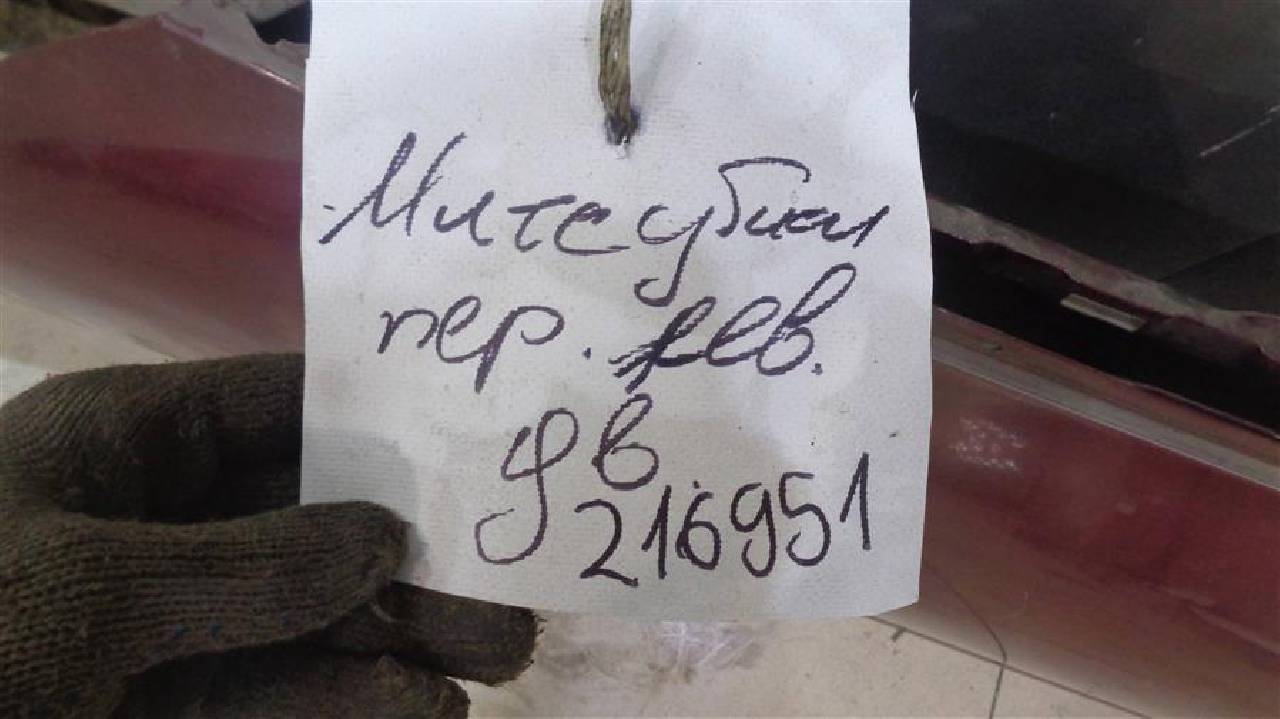 Митсубиси
пер. лев.
дв
216951